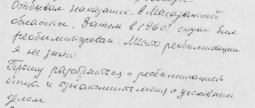 Отбывал наказание в Магаданской
области. Затем в 1960 годах был
реабилитирован. Место реабилитации
я не знаю
Прошу разобраться о реабилитации
отца и ознакомить меня с уголовным
делом